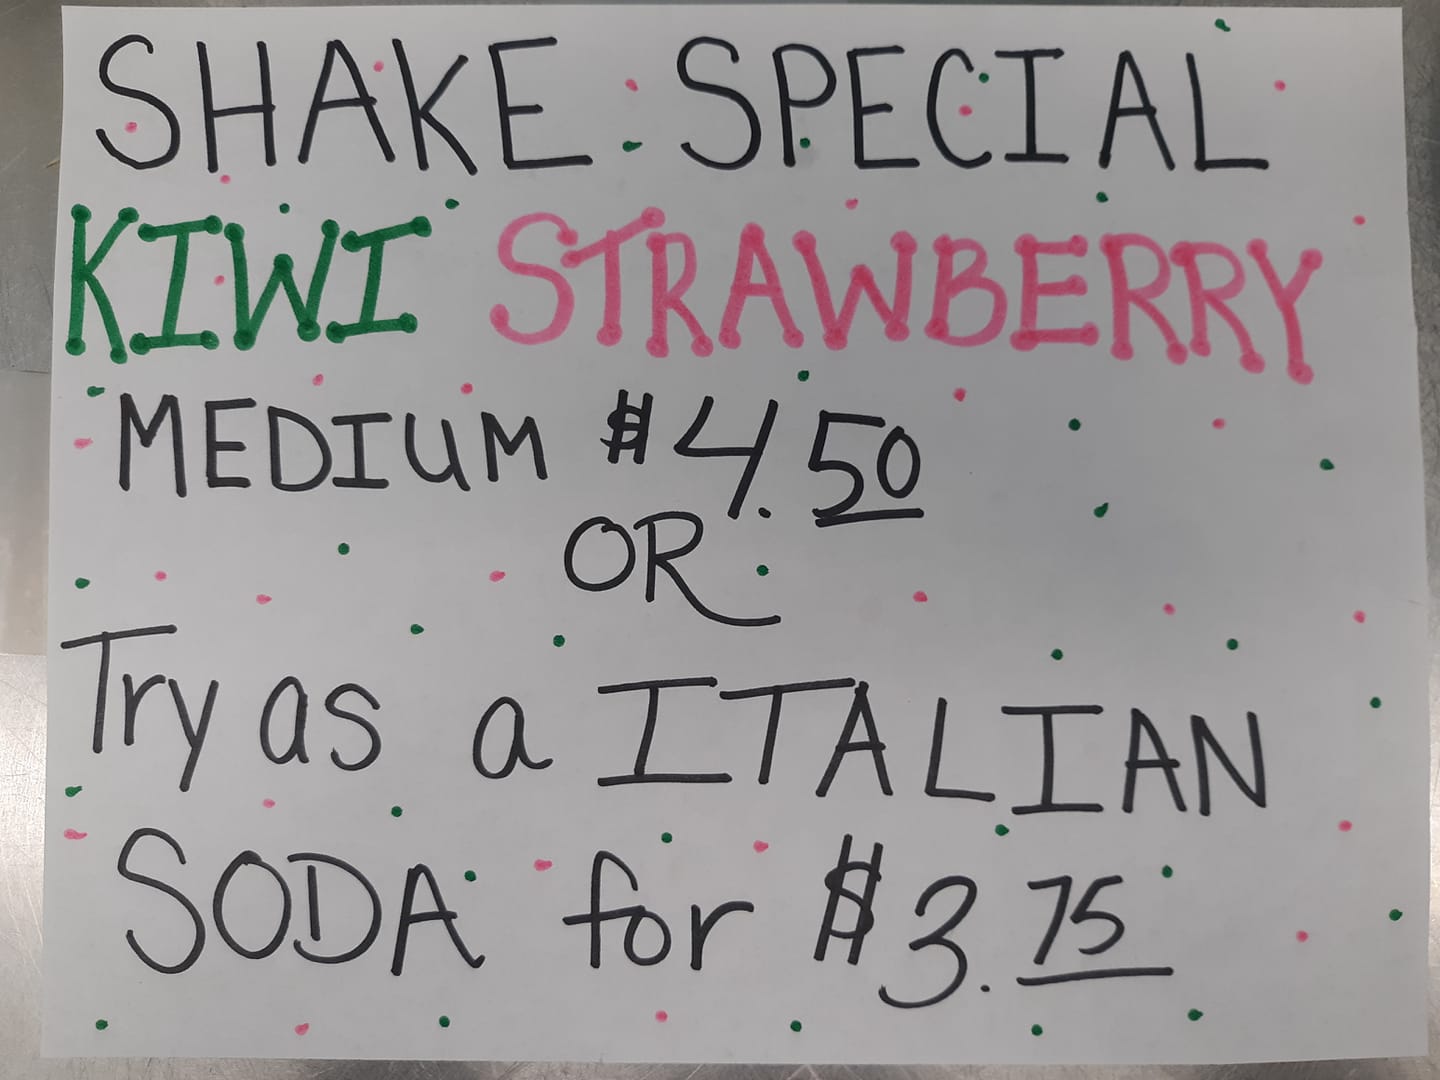 SHAKE SPECIAL
KIWI STRAWBERRY
MEDIUM $4.50
OR
Try as a ITALIAN
SODA for $3.75